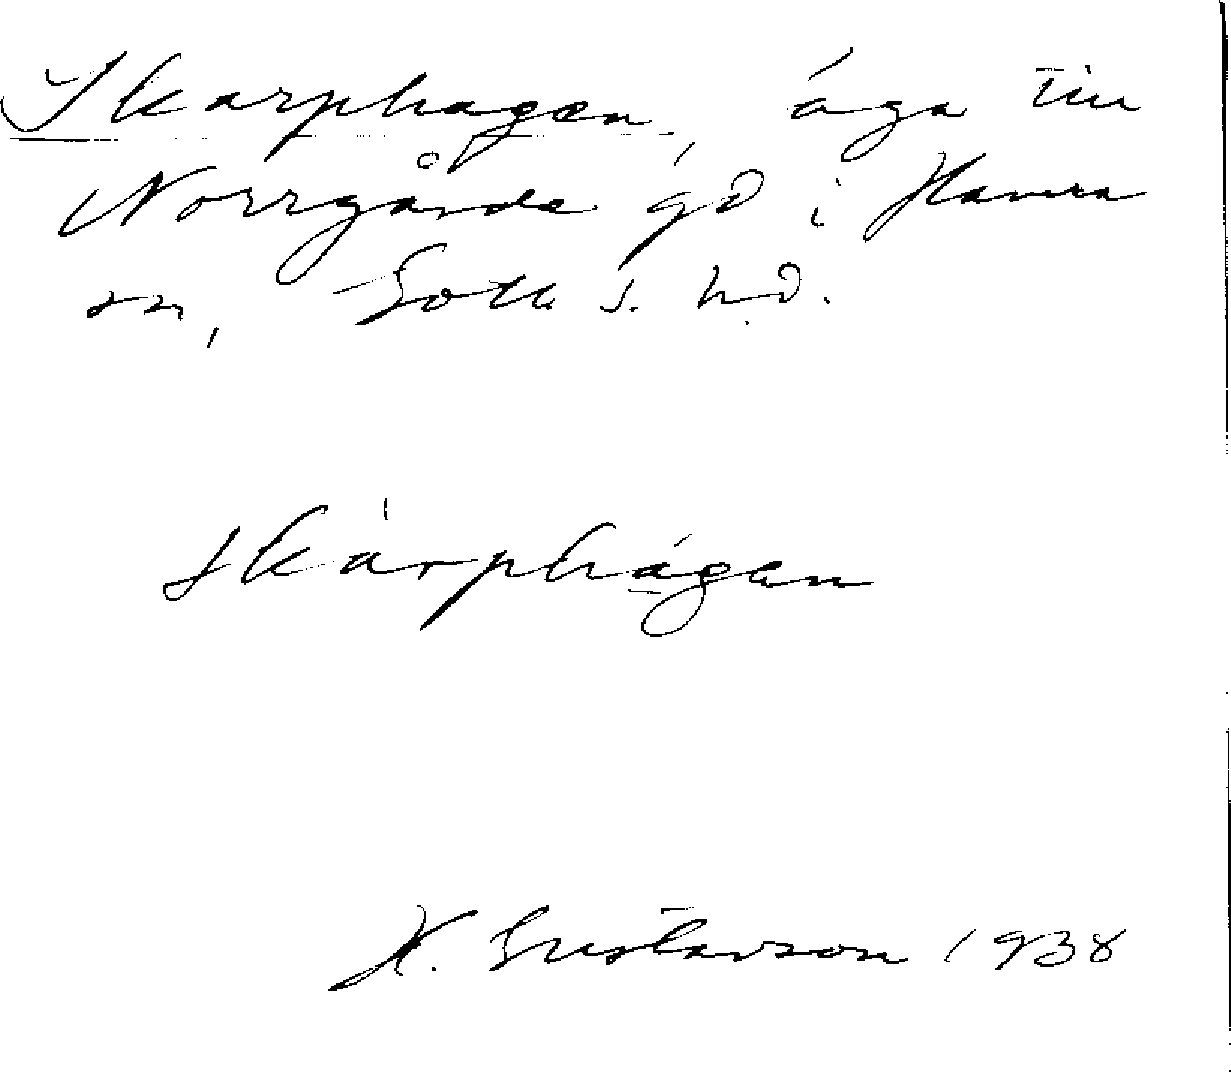 Skarphagen, äga till
Norrgårde gd i Hamra
sn, Gotl. s. hd.
skarphagen
H. Gustavson 1938